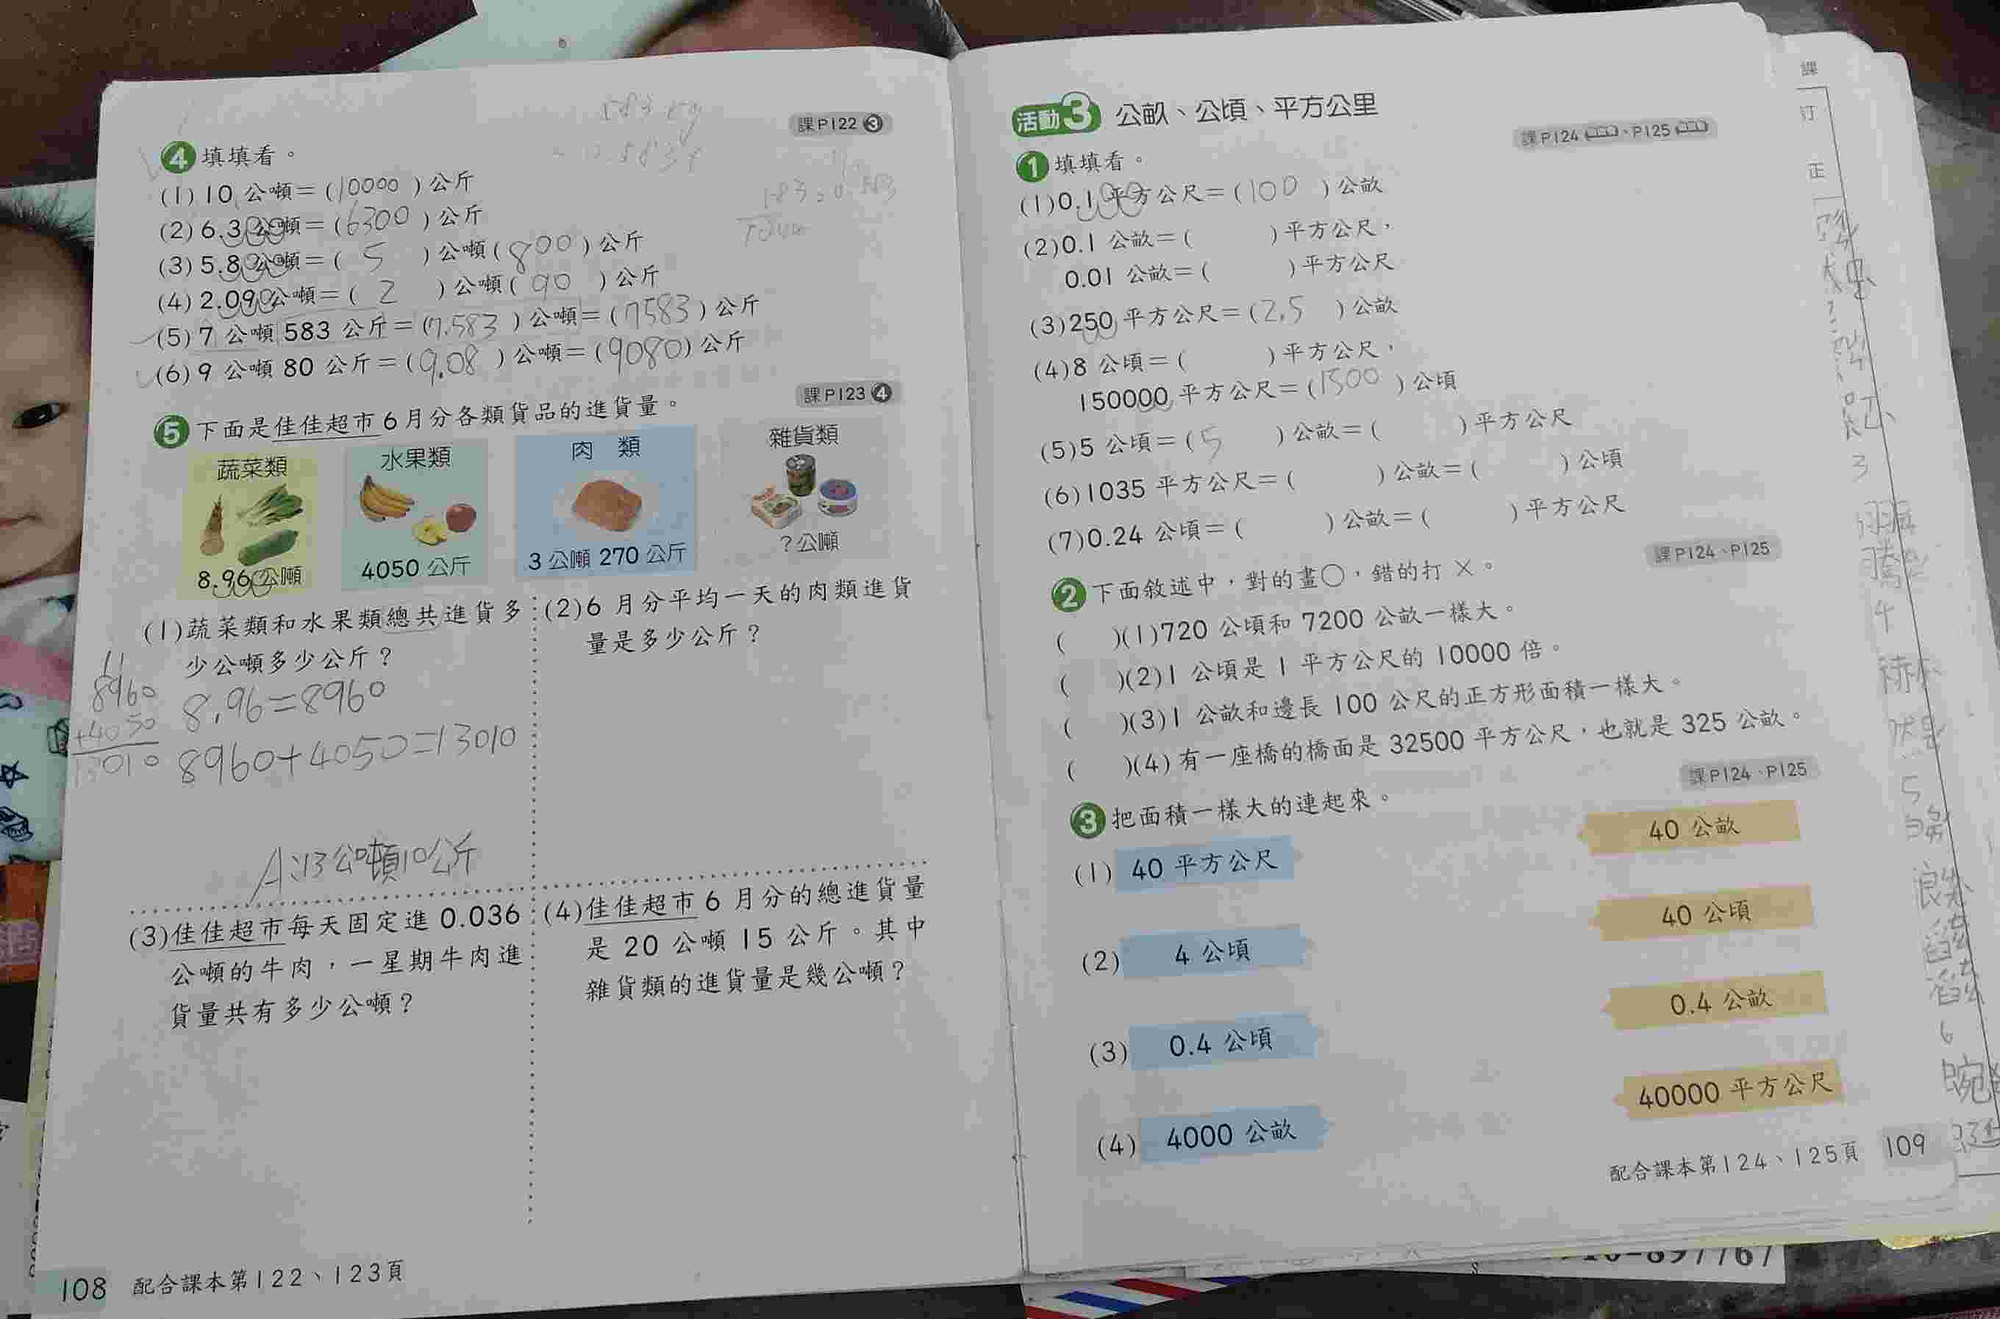 課P122 3
4 填填看。
(1) 10 公噸=(10000)公斤
(2) 6.3 公噸=(6300)公斤
(3) 5.8 公噸=(5)公噸(800)公斤
(4) 2.09 公噸=(2)公噸(90)公斤
(5) 7 公噸 583 公斤=(7.583)公噸=(7583)公斤
(6) 9 公噸 80 公斤=(9.08)公噸=(9080)公斤
課P123 4
5 下面是佳佳超市6月分各類貨品的進貨量。
蔬菜類 水果類 肉 類 雜貨類
8.96 公噸 4050 公斤 3 公噸 270 公斤 ?公噸
(1)蔬菜類和水果類總共進貨多
少公噸多少公斤?
8960
+4050
13010
8.96=8960
8960+4050=13010
A:13公噸10公斤
(2)6 月分平均一天的肉類進貨
量是多少公斤?
(3)佳佳超市每天固定進 0.036
公噸的牛肉,一星期牛肉進
貨量共有多少公噸?
(4)佳佳超市 6 月分的總進貨量
是 20 公噸 15 公斤。其中
雜貨類的進貨量是幾公噸?
108 配合課本第122、123頁
活動3 公畝、公頃、平方公里
課P124、P125
1 填填看。
(1)0.1 平方公尺=(100)公畝
(2)0.1 公畝=( )平方公尺,
0.01 公畝=( )平方公尺
(3)250 平方公尺=(2.5)公畝
(4)8 公頃=( )平方公尺,
150000 平方公尺=(1500)公頃
(5)5 公頃=(5)公畝=( )平方公尺
(6)1035 平方公尺=( )公畝=( )公頃
(7)0.24 公頃=( )公畝=( )平方公尺
課P124、P125
2 下面敘述中,對的畫○,錯的打×。
( )(1)720 公頃和 7200 公畝一樣大。
( )(2)1 公頃是 1 平方公尺的 10000 倍。
( )(3)1 公畝和邊長 100 公尺的正方形面積一樣大。
( )(4)有一座橋的橋面是 32500 平方公尺,也就是 325 公畝。
課P124、P125
3 把面積一樣大的連起來。
(1) 40 平方公尺 40 公畝
(2) 4 公頃 40 公頃
(3) 0.4 公頃 0.4 公畝
(4) 4000 公畝 40000 平方公尺
配合課本第124、125頁 109
課
訂
正
3
4
5
6